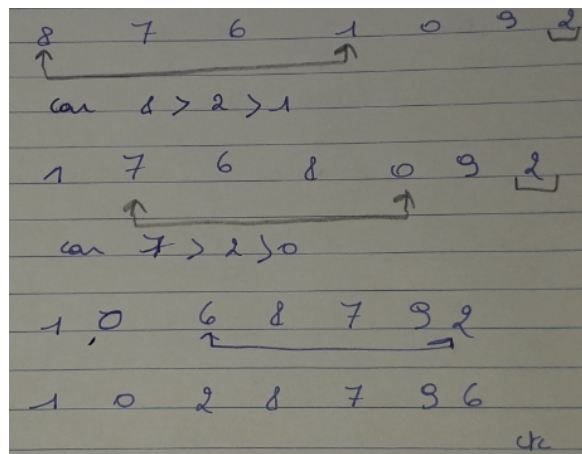 8 7 6 1 0 9 2
car 8 > 2 > 1
1 7 6 8 0 9 2
car 7 > 2 > 0
1 0 6 8 7 9 2
1 0 2 8 7 9 6
etc